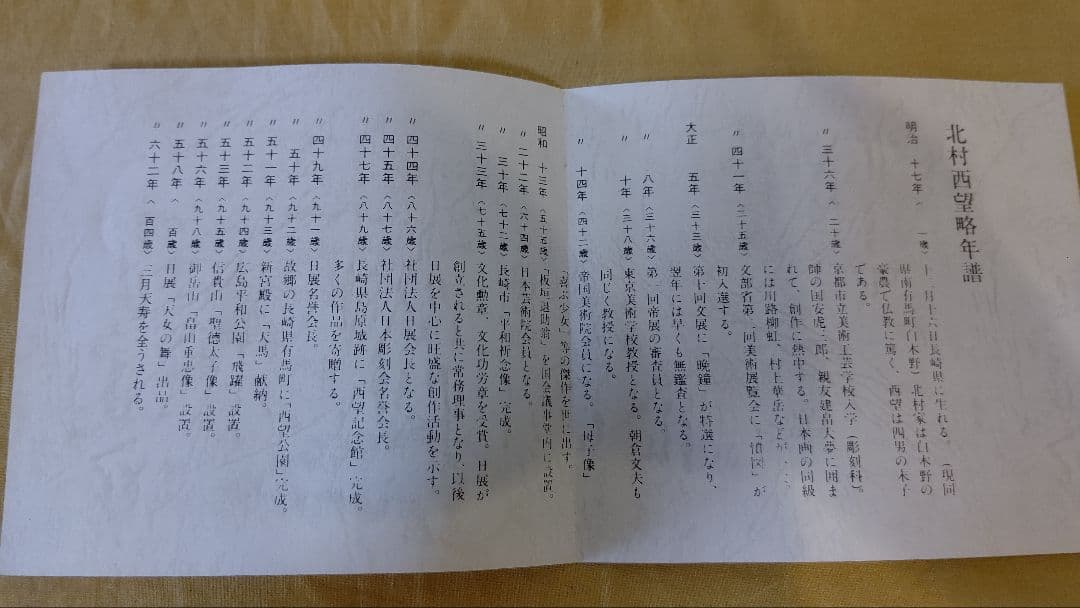 北村西望略年譜
明治 十七年 (一歳) 十二月十六日長崎県に生れる。(現同
県南有馬町白木野)北村家は白木野の
豪農で仏教に篤く、西望は四男の末子
である。
〃 三十六年 (二十歳) 京都市立美術工芸学校入学(彫刻科)。
師の国安虎二郎、親友建畠大夢に囲ま
れて、創作に熱中する。日本画の同級
には川路柳虹、村上華岳などが
〃 四十一年 (二十五歳) 文部省第二回美術展覧会に「憤図」が
初入選する。
大正 五年 (三十三歳) 第十回文展に「晩鐘」が特選になり、
翌年には早くも無鑑査となる。
〃 八年 (三十六歳) 第一回帝展の審査員となる。
〃 十年 (三十八歳) 東京美術学校教授となる。朝倉文夫も
同じく教授になる。
〃 十四年 (四十二歳) 帝国美術院会員になる。「母子像」
「喜ぶ少女」等の傑作を世に出す。
昭和 十三年 (五十五歳) 「板垣退助翁」を国会議事堂内に設置。
〃 二十二年 (六十四歳) 日本芸術院会員となる。
〃 三十年 (七十二歳) 長崎市「平和祈念像」完成。
〃 三十三年 (七十五歳) 文化勲章、文化功労章を受賞。日展が
創立されると共に常務理事となり、以後
日展を中心に旺盛な創作活動を示す。
〃 四十四年 (八十六歳) 社団法人日展会長となる。
〃 四十五年 (八十七歳) 社団法人日本彫刻会名誉会長。
〃 四十七年 (八十九歳) 長崎県島原城跡に「西望記念館」完成。
多くの作品を寄贈する。
〃 四十九年 (九十一歳) 日展名誉会長。
〃 五十年 (九十二歳) 故郷の長崎県有馬町に「西望公園」完成。
〃 五十一年 (九十三歳) 新宮殿に「天馬」献納。
〃 五十二年 (九十四歳) 広島平和公園「飛躍」設置。
〃 五十三年 (九十五歳) 信貴山「聖徳太子像」設置。
〃 五十六年 (九十八歳) 御岳山「畠山重忠像」設置。
〃 五十八年 (百歳) 日展「天女の舞」出品。
〃 六十二年 (百四歳) 三月天寿を全うされる。